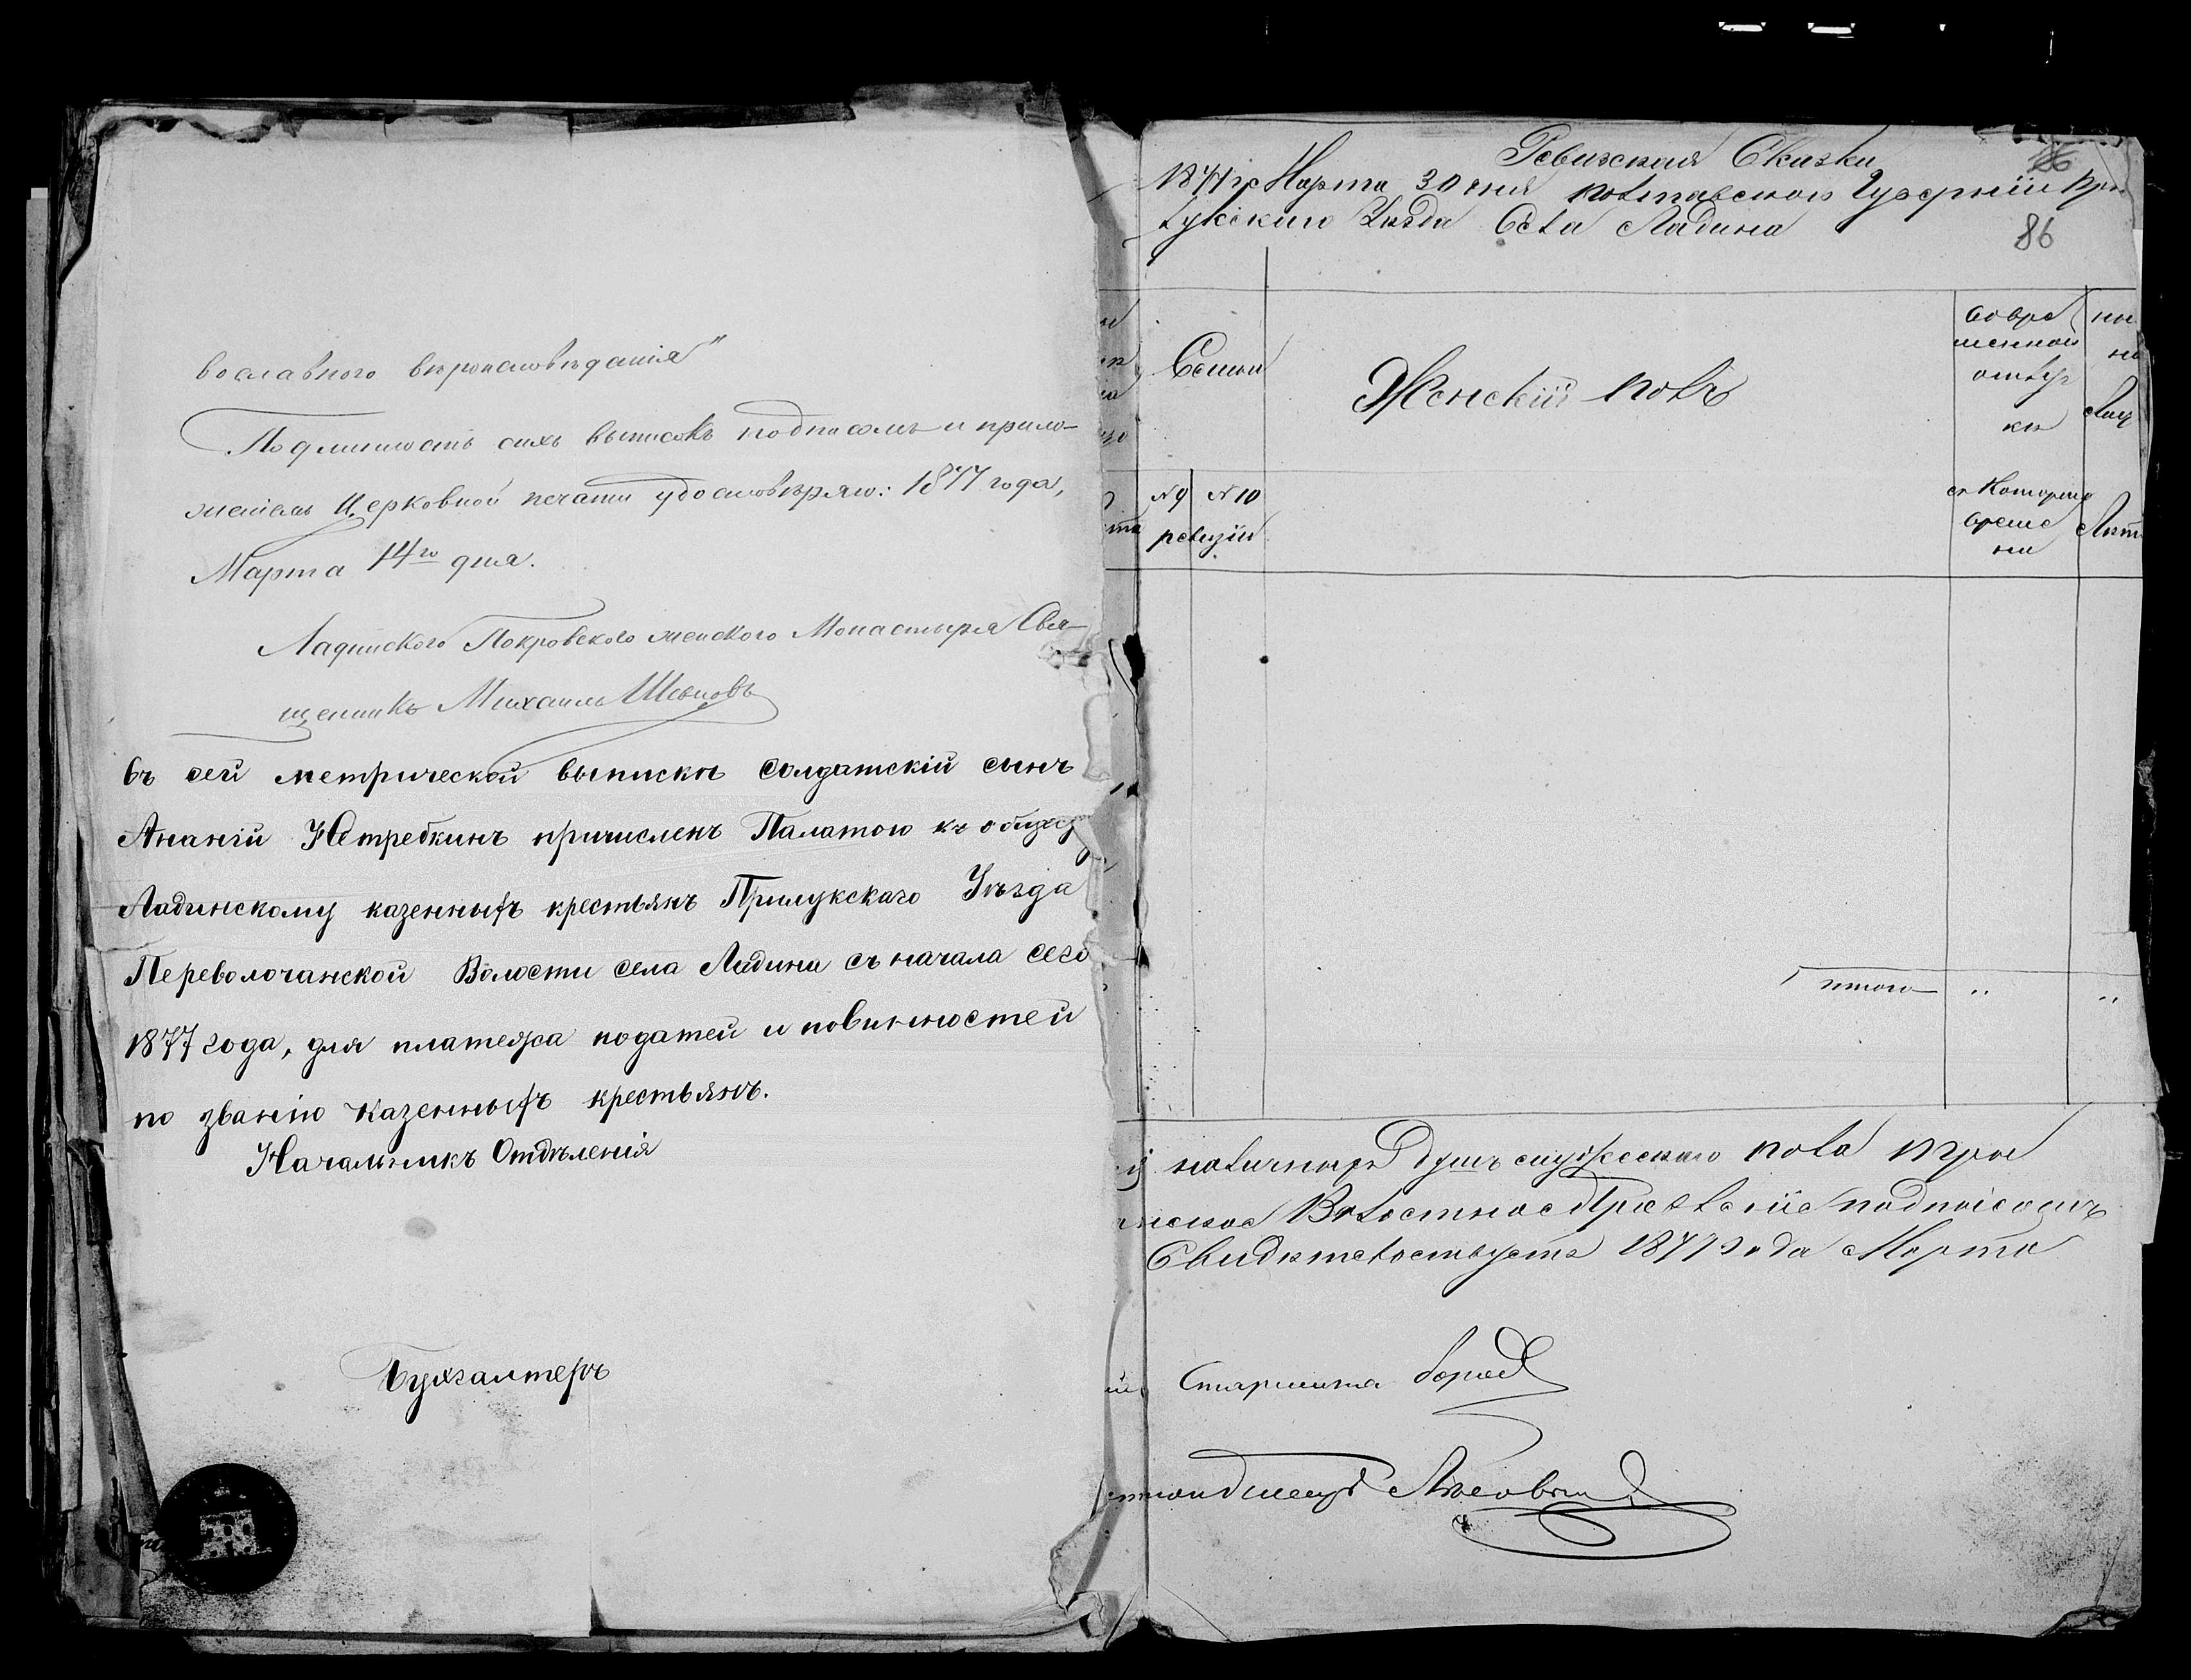 вославнаго вѣроисповѣданія"
Подлинность сихъ выписокъ подписомъ и прило-
женіемъ Церковной печати удостовѣряю: 1877 года,
Марта 14го дня.
Ладинскаго Покровскаго женскаго Монастыря Свя-
щенникъ Михаилъ
въ сей метрической выпискѣ солдатскій сынъ
Ананій Ястребкинъ причисленъ Палатою къ
Ладинскому казенныхъ крестьянъ Прилукскаго Уѣзда
Переволочанской Волости села Ладина съ начала сего
1877 года, для платежа податей и повинностей
по званію казенныхъ крестьянъ.
Начальникъ Отдѣленія
Бухгалтеръ
Ревизская Сказка
1877 г. Марта 30 дня Полтавской Губерніи При
лукскаго Уѣзда Села Ладина
86
Семьи
Женскій полъ
Во вре
менной
отлуч
кѣ
№ 9 № 10
ревизіи
съ Котораго
време
ни
Лѣт
итого " "
наличныхъ Душъ мужескаго пола
Волостное Правленіе подписомъ
Свидѣтельствуетъ 1877 года Марта
Старшина